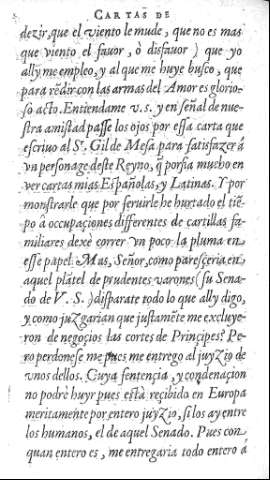 CARTAS DE
dezir, que el viento le mude, que no es mas
que viento el fauor, ò disfauor) que yo
ally me empleo, y al que me huye busco, que
para rẽdir con las armas del Amor es glorio-
so acto. Entiendame v. s. y en señal de nue-
stra amistad passe los ojos por essa carta que
escriuo al Sr. Gil de Mesa para satisfazer á
vn personage deste Reyno, q̃ porfia mucho en
ver cartas mias Españolas, y Latinas. Y por
monstrarle que por seruirle he hurtado el tiẽ-
po à occupaciones differentes de cartillas fa-
miliares dexè correr vn poco la pluma en
esse papel. Mas, Señor, como paresçeria en
aquel plãtel de prudentes varones (su Sena-
do de V. S.) disparate todo lo que ally digo,
y como juZgarian que justamẽte me excluye-
ron de negocios las cortes de Principes? Pe-
ro perdonese me pues me entrego al juyZio de
vnos dellos. Cuya sentencia, y condenacion
no podrè huyr pues està recibido en Europa
meritamente por entero juyZio, si los ay entre
los humanos, el de aquel Senado. Pues con
quan entero es, me entregaria todo entero à